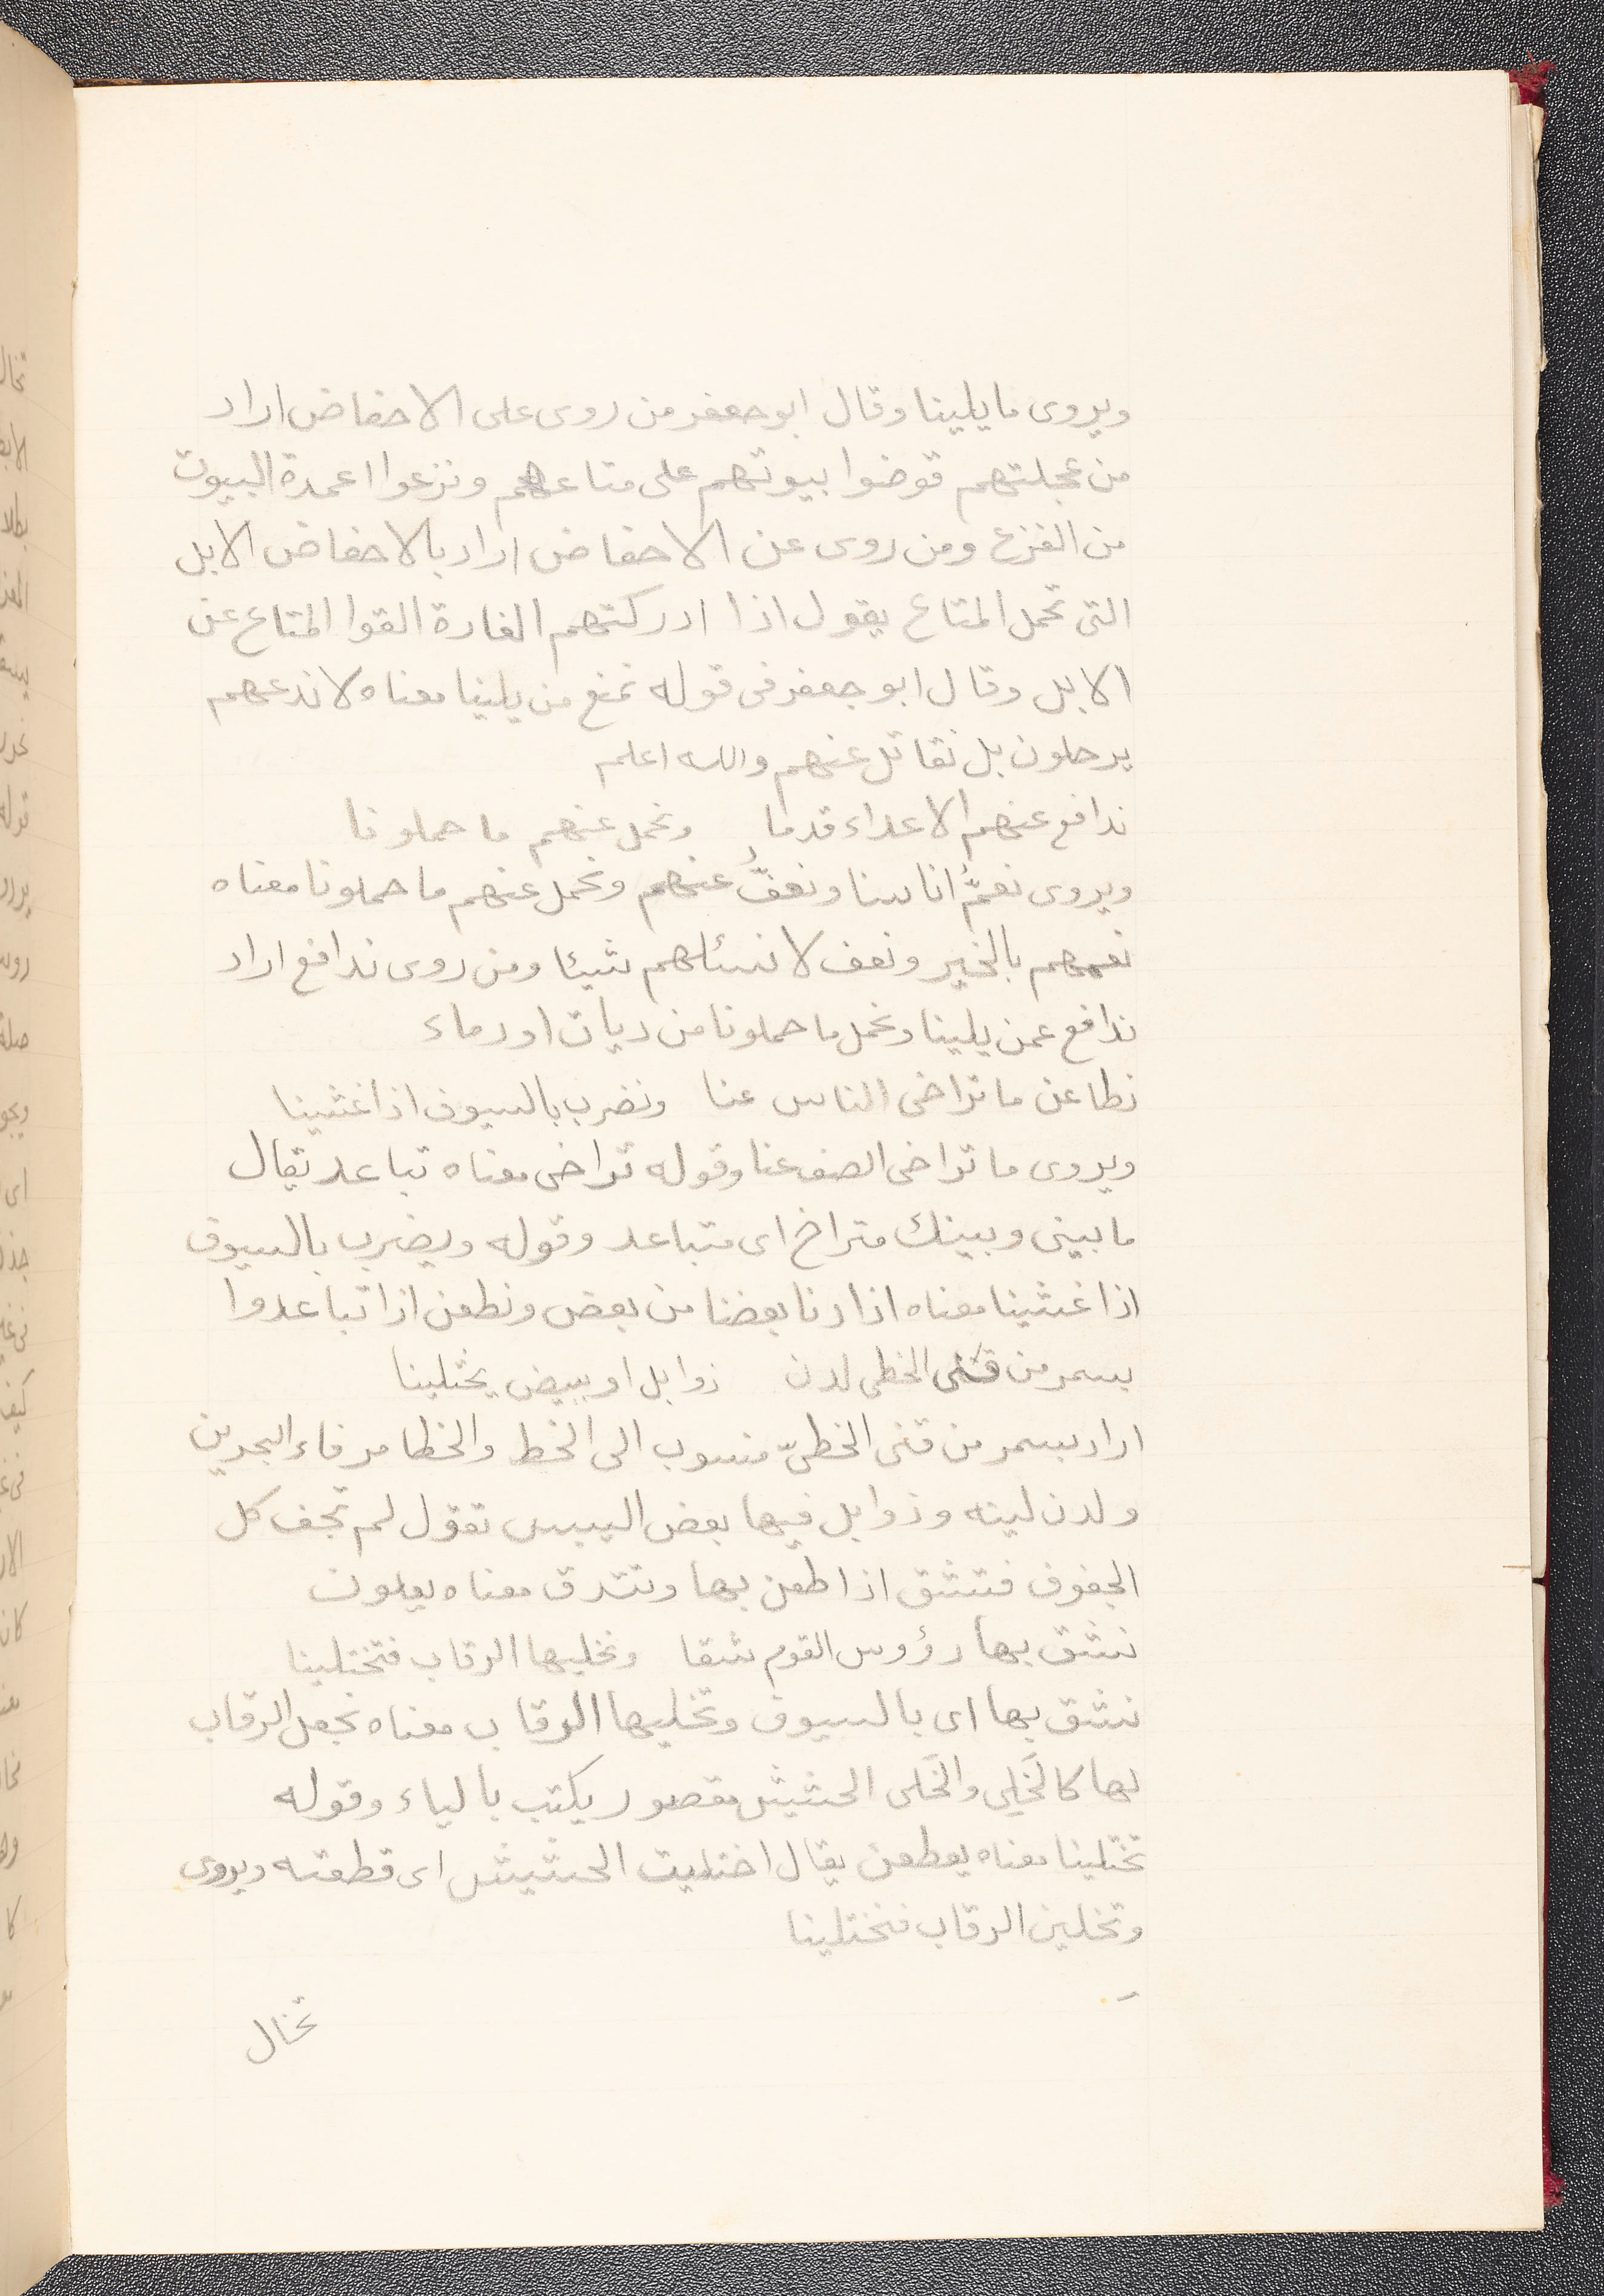 ويروى ما يلينا وقال ابو جعفر من روى على الاحفاض اراد
من عجلتهم قوضوا بيوتهم على متاعهم ونزعوا اعمدة البيوت
من الفزع ومن روى عن الاحفاض اراد بالاحفاض الابل
التى تحمل المتاع يقول اذا ادركتهم الغارة القوا المتاع عن
الابل وقال ابو جعفر فى قوله نمنع من يلينا معناه لا ندعهم
يرحلون بل نقاتل عنهم والله اعلم
ندافع عنهم الاعداء قدما ونحمل عنهم ما حملونا
ويروى نعمُّ اناسنا ونعفُّ عنهم ونحمل عنهم ما حملونا معناه
نعمهم بالخير ونعف لا نسئلهم شيئا ومن روى ندافع اراد
ندافع عمن يلينا ونحمل ما حملونا من ديات او دماء
نطاعن ما تراخى الناس عنا ونضرب بالسيوف اذا غشينا
ويروى ما تراخى الصف عنا وقوله تراخى معناه تباعد يقال
ما بينى وبينك متراخ اى متباعد وقوله ويضرب بالسيوف
اذا غشينا معناه اذا دنا بعضنا من بعض ونطعن اذا تباعدوا
بسمر من قنى الخطى لدن ذوابل او ببيض يختلينا
اراد بسمر من قنى الخطىّ منسوب الى الخط والخطا مرفاء البحرين
ولدن لينه وذوابل فيها بعض اليبس تقول لم تجف كل
الجفوف فتنشق اذا طعن بها وتندق معناه يعلون
نشق بها رؤوس القوم شقا ونخليها الرقاب فتختلينا
نشق بها اى بالسيوف وتخليها الرقاب معناه نجعل الرقاب
لها كالخَلى والخَلى الحشيش مقصور يكتب بالياء وقوله
تختلينا معناه يعطعن يقال اختليت الحشيش اى قطعته ويروى
وتخلين الرقاب فتختلينا
تخال